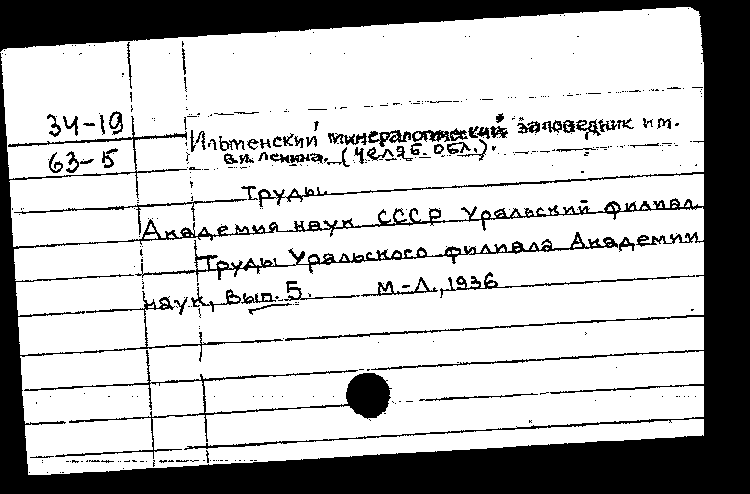 34-19
Ильменский минералогический заповедник им.
63-5
В.И. Ленина. (Челяб. обл.).
Труды.
Академия наук СССР Уральский филиал.
Труды Уральского филиала Академии
наук, Вып. 5. М.-Л., 1936